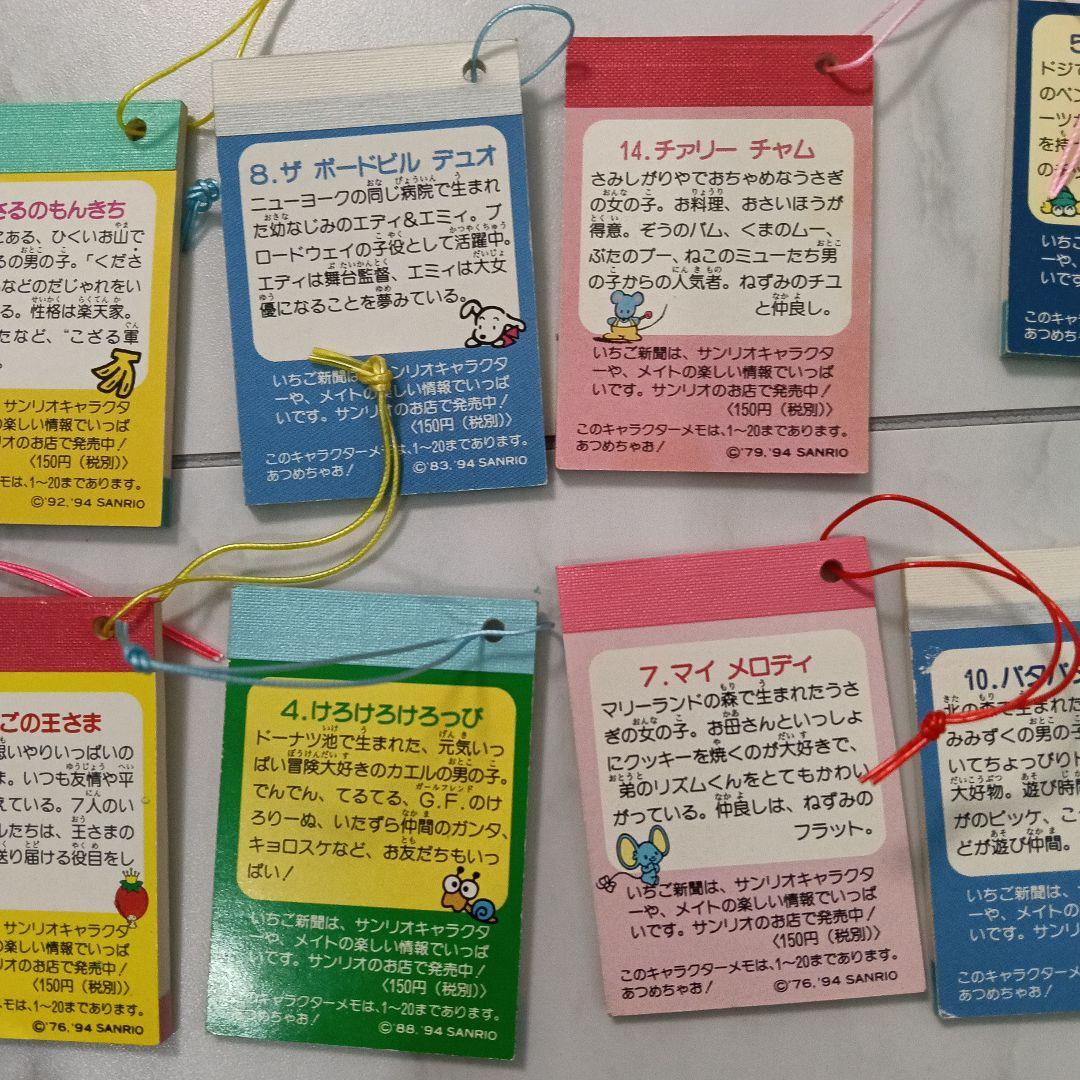 さるのもんきち
にある、ひくいお山で
るの男の子。「くださ
などのだじゃれをい
る。性格は楽天家。
たなど、“こざる軍
。
サンリオキャラクタ
の楽しい情報でいっぱ
リオのお店で発売中！
〈150円（税別）〉
モは、1〜20まであります。
©'92,'94 SANRIO
8.ザ ボードビル デュオ
ニューヨークの同じ病院で生まれ
た幼なじみのエディ&エミィ。ブ
ロードウェイの子役として活躍中。
エディは舞台監督、エミィは大女
優になることを夢みている。
いちご新聞は、サンリオキャラクタ
ーや、メイトの楽しい情報でいっぱ
いです。サンリオのお店で発売中！
〈150円（税別）〉
このキャラクターメモは、1〜20まであります。
あつめちゃお！
©'83,'94 SANRIO
14.チアリー チャム
さみしがりやでおちゃめなうさぎ
の女の子。お料理、おさいほうが
得意。ぞうのパム、くまのムー、
ぶたのブー、ねこのミューたち男
の子からの人気者。ねずみのチユ
と仲良し。
いちご新聞は、サンリオキャラクタ
ーや、メイトの楽しい情報でいっぱ
いです。サンリオのお店で発売中！
〈150円（税別）〉
このキャラクターメモは、1〜20まであります。
あつめちゃお！
©'79,'94 SANRIO
5
ドジで
のペン
ーツが
を持
の
いちご
ーや、
いです
このキャラ
あつめちゃ
ごの王さま
思いやりいっぱいの
ま。いつも友情や平
えている。7人のい
ルたちは、王さまの
送り届ける役目をし
サンリオキャラクタ
の楽しい情報でいっぱ
リオのお店で発売中！
〈150円（税別）〉
モは、1〜20まであります。
©'76,'94 SANRIO
4.けろけろけろっぴ
ドーナツ池で生まれた、元気いっ
ぱい冒険大好きのカエルの男の子。
でんでん、てるてる、G.F.のけ
ろりーぬ、いたずら仲間のガンタ、
キョロスケなど、お友だちもいっ
ぱい！
いちご新聞は、サンリオキャラクタ
ーや、メイトの楽しい情報でいっぱ
いです。サンリオのお店で発売中！
〈150円（税別）〉
このキャラクターメモは、1〜20まであります。
あつめちゃお！
©'88,'94 SANRIO
7.マイ メロディ
マリーランドの森で生まれたうさ
ぎの女の子。お母さんといっしょ
にクッキーを焼くのが大好きで、
弟のリズムくんをとてもかわい
がっている。仲良しは、ねずみの
フラット。
いちご新聞は、サンリオキャラクタ
ーや、メイトの楽しい情報でいっぱ
いです。サンリオのお店で発売中！
〈150円（税別）〉
このキャラクターメモは、1〜20まであります。
あつめちゃお！
©'76,'94 SANRIO
10.パタパ
北の森で生まれた
みみずくの男の子
いてちょっぴり
大好物。遊び時間
がのピッケ、こ
どが遊び仲間。
いちご新聞は、サン
ーや、メイトの楽
いです。サンリ
このキャラクターメ
あつめちゃお！